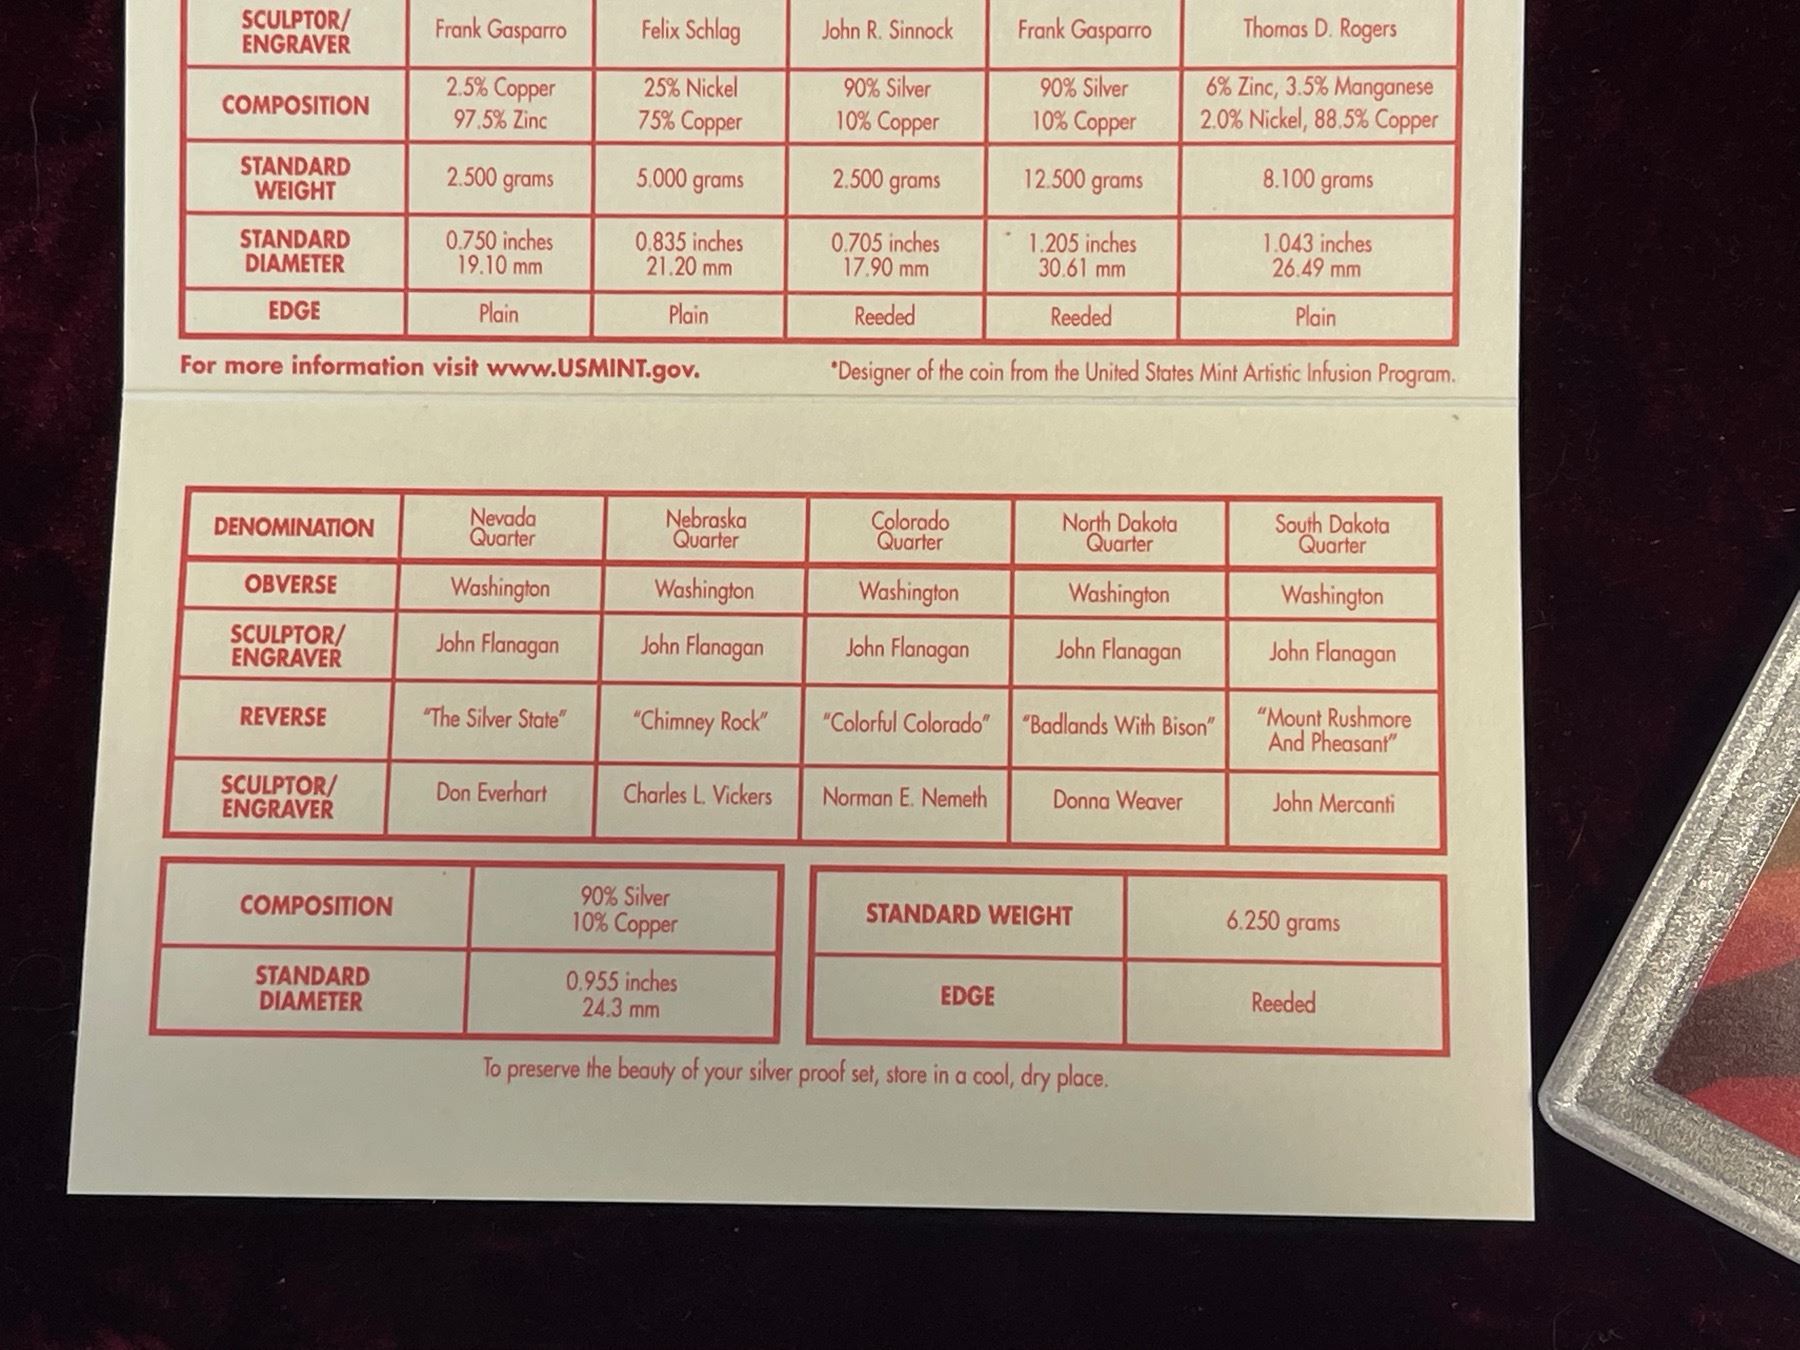 SCULPTOR/
ENGRAVER
Frank Gasparro
Felix Schlag
John R. Sinnock
Frank Gasparro
Thomas D. Rogers
COMPOSITION
2.5% Copper
97.5% Zinc
25% Nickel
75% Copper
90% Silver
10% Copper
90% Silver
10% Copper
6% Zinc, 3.5% Manganese
2.0% Nickel, 88.5% Copper
STANDARD
WEIGHT
2.500 grams
5.000 grams
2.500 grams
12.500 grams
8.100 grams
STANDARD
DIAMETER
0.750 inches
19.10 mm
0.835 inches
21.20 mm
0.705 inches
17.90 mm
1.205 inches
30.61 mm
1.043 inches
26.49 mm
EDGE
Plain
Plain
Reeded
Reeded
Plain
For more information visit www.USMINT.gov.
*Designer of the coin from the United States Mint Artistic Infusion Program.
DENOMINATION
Nevada
Quarter
Nebraska
Quarter
Colorado
Quarter
North Dakota
Quarter
South Dakota
Quarter
OBVERSE
Washington
Washington
Washington
Washington
Washington
SCULPTOR/
ENGRAVER
John Flanagan
John Flanagan
John Flanagan
John Flanagan
John Flanagan
REVERSE
"The Silver State"
"Chimney Rock"
"Colorful Colorado"
"Badlands With Bison"
"Mount Rushmore
And Pheasant"
SCULPTOR/
ENGRAVER
Don Everhart
Charles L. Vickers
Norman E. Nemeth
Donna Weaver
John Mercanti
COMPOSITION
90% Silver
10% Copper
STANDARD WEIGHT
6.250 grams
STANDARD
DIAMETER
0.955 inches
24.3 mm
EDGE
Reeded
To preserve the beauty of your silver proof set, store in a cool, dry place.